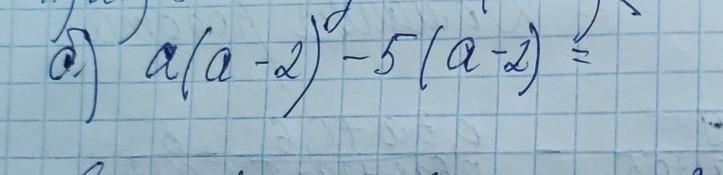 б) a(a-2)-5(a-2)=